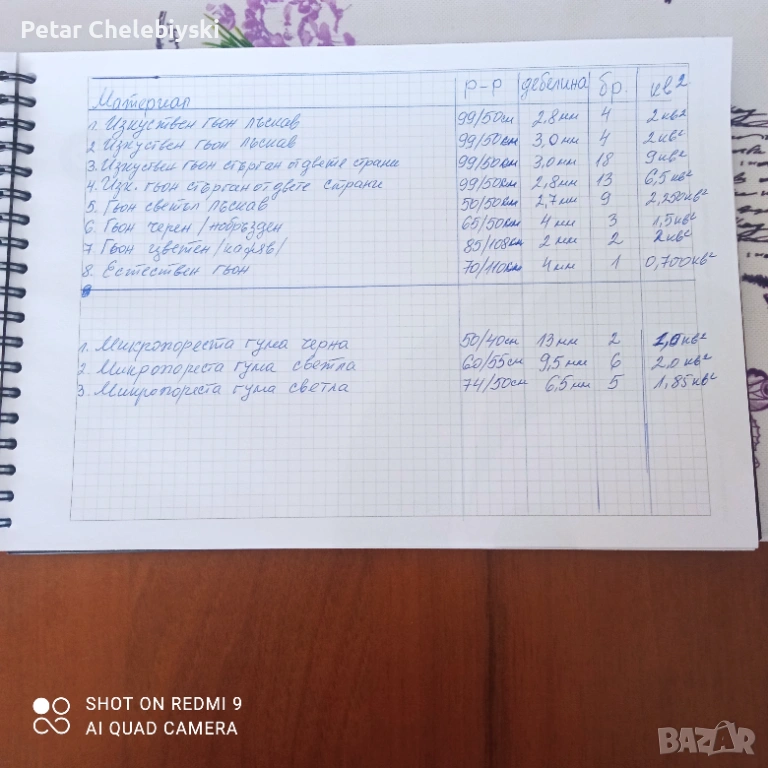 Petar Chelebiyski
Материал р-р дебелина бр. кв²
1. Изкуствен гьон лъскав 99/50см 2.8мм 4 2кв²
2 Изкуствен гьон лъскав 99/50см 3,0мм 4 2кв²
3. Изкуствен гьон стърган от двете страни 99/50см 3,0мм 18 9кв²
4. Изк. гьон стърган от двете страни 99/50см 2,8мм 13 6,5кв²
5. Гьон светъл лъскав 50/50см 2,7мм 9 2,250кв²
6. Гьон черен /набръзден 65/50см 4 мм 3 1,5кв²
7. Гьон цветен /кафяв/ 85/108см 2 мм 2 2кв²
8. Естествен гьон 70/110см 4мм 1 0,700кв²
1. Микропореста гума черна 50/40см 13мм 2 1,0кв²
2. Микропореста гума светла 60/55см 9,5мм 6 2.0кв²
3. Микропореста гума светла 74/50см 6,5мм 5 1,85кв²
SHOT ON REDMI 9
AI QUAD CAMERA
BAZAR